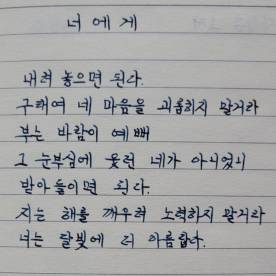 너에게
내려 놓으면 된다.
구태여 네 마음을 괴롭히지 말거라
부는 바람이 예뻐
그 눈부심에 웃던 네가 아니었니
받아들이면 된다.
지는 해를 깨우려 노력하지 말거라
너는 달빛에 더 아름답다.